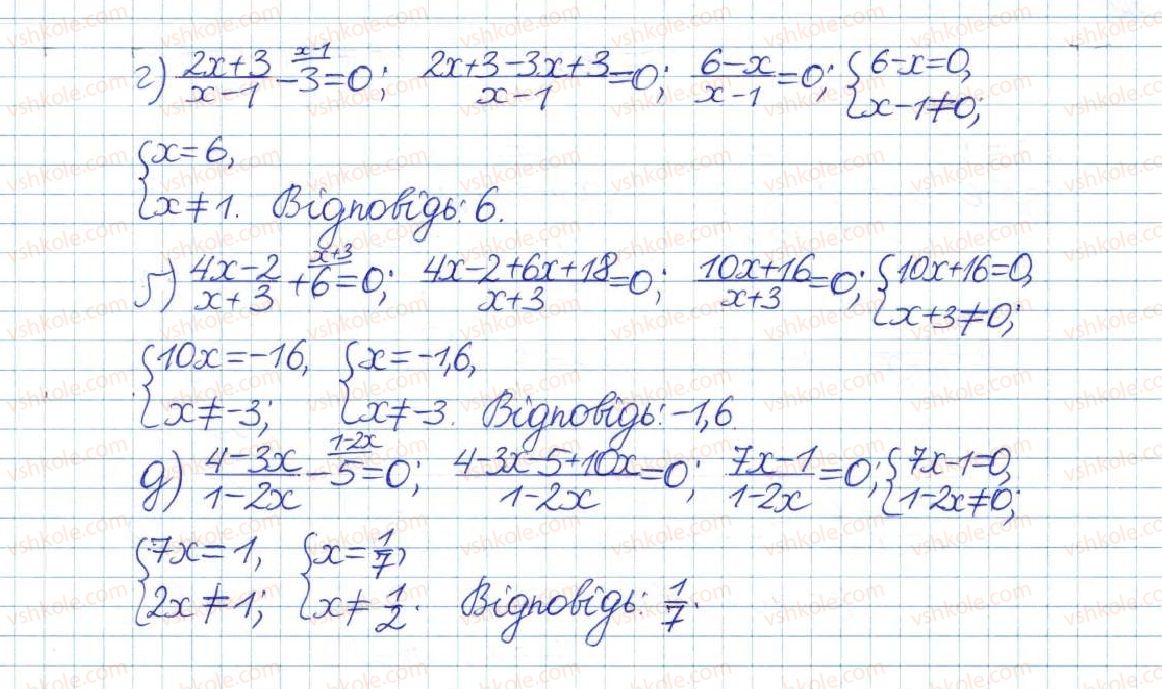 г) (2x+3)/(x-1) - 3^(x-1) = 0; (2x+3-3x+3)/(x-1) = 0; (6-x)/(x-1) = 0; { 6-x=0, x-1≠0;
{ x=6, x≠1. Відповідь: 6.
ґ) (4x-2)/(x+3) + 6^(x+3) = 0; (4x-2+6x+18)/(x+3) = 0; (10x+16)/(x+3) = 0; { 10x+16=0, x+3≠0;
{ 10x=-16, x≠-3; { x=-1,6, x≠-3. Відповідь: -1,6.
д) (4-3x)/(1-2x) - 5^(1-2x) = 0; (4-3x-5+10x)/(1-2x) = 0; (7x-1)/(1-2x) = 0; { 7x-1=0, 1-2x≠0;
{ 7x=1, 2x≠1; { x=1/7, x≠1/2. Відповідь: 1/7.
vshkole.com